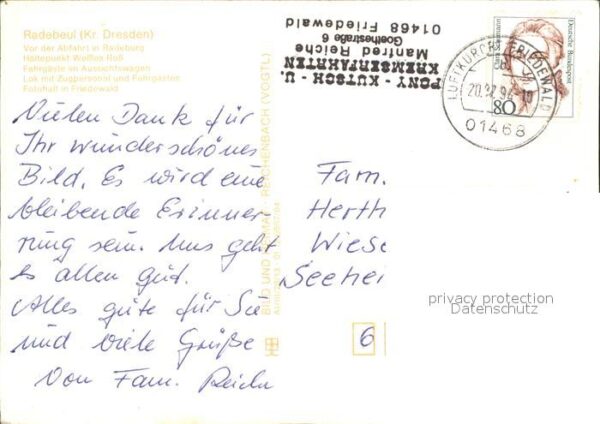 Radebeul (Kr. Dresden)
Vor der Abfahrt in Radeburg
Haltepunkt Weißes Roß
Fahrgäste im Aussichtswagen
Lok mit Zugpersonal und Fahrgästen
Fotohalt in Friedewald
Vielen Dank für
Ihr wunderschönes
Bild. Es wird eine
bleibende Erinner-
rung sein. Uns geht
es allen gut.
Alles gute für Sie
und viele Grüße
Von Fam. Reiche
BILD UND HEIMAT REICHENBACH (VOGTL)
PONY - KUTSCH - U.
KREMSERFAHRTEN
Manfred Reiche
Goethestraße 6
01468 Friedewald
Deutsche Bundespost
80
LUFTKURORT FRIEDEWALD
01468
Fam.
Herth
Wiese
Seehei
6
privacy protection
Datenschutz